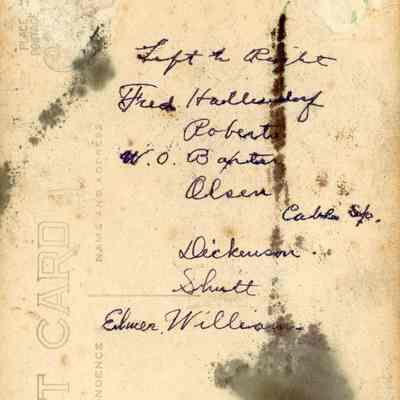 Left to Right
Fred Hallisdorf
Roberts
W. O. Baxter
Olsen
Cables Sep.
Dickenson.
Shutt
Elmer Williams
PLACE
NAME AND ADDRESS
T CARD
NDENCE